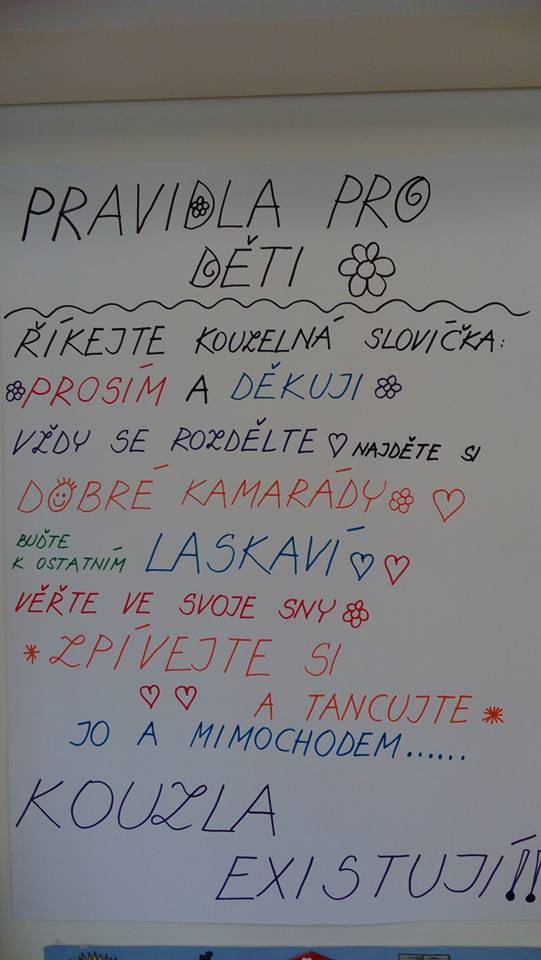 PRAVIDLA PRO
DĚTI
ŘÍKEJTE KOUZELNÁ SLOVÍČKA:
PROSÍM A DĚKUJI
VŽDY SE ROZDĚLTE NAJDĚTE SI
DOBRÉ KAMARÁDY
BUĎTE
K OSTATNÍM LASKAVÍ
VĚŘTE VE SVOJE SNY
ZPÍVEJTE SI
A TANCUJTE
JO A MIMOCHODEM......
KOUZLA
EXISTUJÍ!!